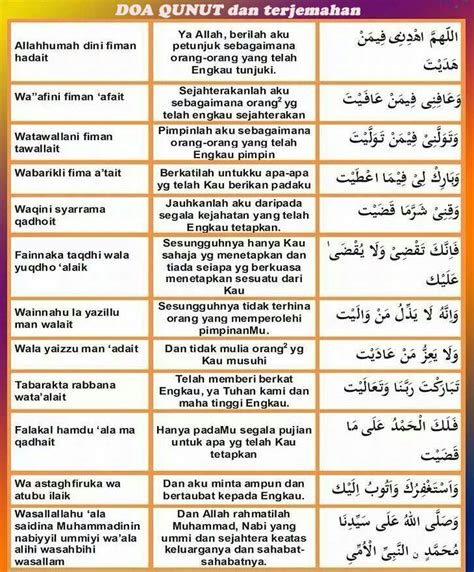 DOA QUNUT dan terjemahan
Allahhumah dini fiman
hadait
Ya Allah, berilah aku
petunjuk sebagaimana
orang-orang yang telah
Engkau tunjuki.
اَللّهُمَّ اهْدِنِى فِيمَنْ
هَدَيْتَ
Wa"afini fiman 'afait
Sejahterakanlah aku
sebagaimana orang² yg
telah engkau sejahterakan
وَعَافِنِى فِيمَنْ عَافَيْتَ
Watawallani fiman
tawallait
Pimpinlah aku sebagaimana
orang-orang yang telah
Engkau pimpin
وَتَوَلَّنِىْ فِيْمَنْ تَوَلَّيْتَ
Wabarikli fima a'tait
Berkatilah untukku apa-apa
yg telah Kau berikan padaku
وَبَارِكْ لِىْ فِيْمَا اَعْطَيْتَ
Waqini syarrama
qadhoit
Jauhkanlah aku daripada
segala kejahatan yang telah
Engkau tetapkan.
وَقِنِيْ شَرَّمَا قَضَيْتَ
Fainnaka taqdhi wala
yuqdho 'alaik
Sesungguhnya hanya Kau
sahaja yg menetapkan dan
tiada seiapa yg berkuasa
menetapkan sesuatu dari
Kau
فَاِنَّكَ تَقْضِىْ وَلَا يُقْضَى
عَلَيْكَ
Wainnahu la yazillu
man walait
Sesungguhnya tidak terhina
orang yang memperolehi
pimpinanMu.
وَاِنَّهُ لَا يَذِلُّ مَنْ وَالَيْتَ
Wala yaizzu man 'adait
Dan tidak mulia orang² yg
Kau musuhi
وَلَا يَعِزُّ مَنْ عَادَيْتَ
Tabarakta rabbana
wata'alait
Telah memberi berkat
Engkau, ya Tuhan kami dan
maha tinggi Engkau.
تَبَارَكْتَ رَبَّنَا وَتَعَالَيْتَ
Falakal hamdu 'ala ma
qadhait
Hanya padaMu segala pujian
untuk apa yg telah Kau
tetapkan
فَلَكَ الْحَمْدُ عَلَى مَا
قَضَيْتَ
Wa astaghfiruka wa
atubu ilaik
Dan aku minta ampun dan
bertaubat kepada Engkau.
وَاَسْتَغْفِرُكَ وَاَتُوبُ اِلَيْكَ
Wasallallahu 'ala
saidina Muhammadinin
nabiyyil ummiyi wa'ala
alihi wasahbihi
wasallam
Dan Allah rahmatilah
Muhammad, Nabi yang
ummi dan sejahtera keatas
keluarganya dan sahabat-
sahabatnya.
وَصَلَّى اللهُ عَلَى سَيِّدِنَا
مُحَمَّدٍ نِ النَّبِيِّ الْاُمِّيِّ